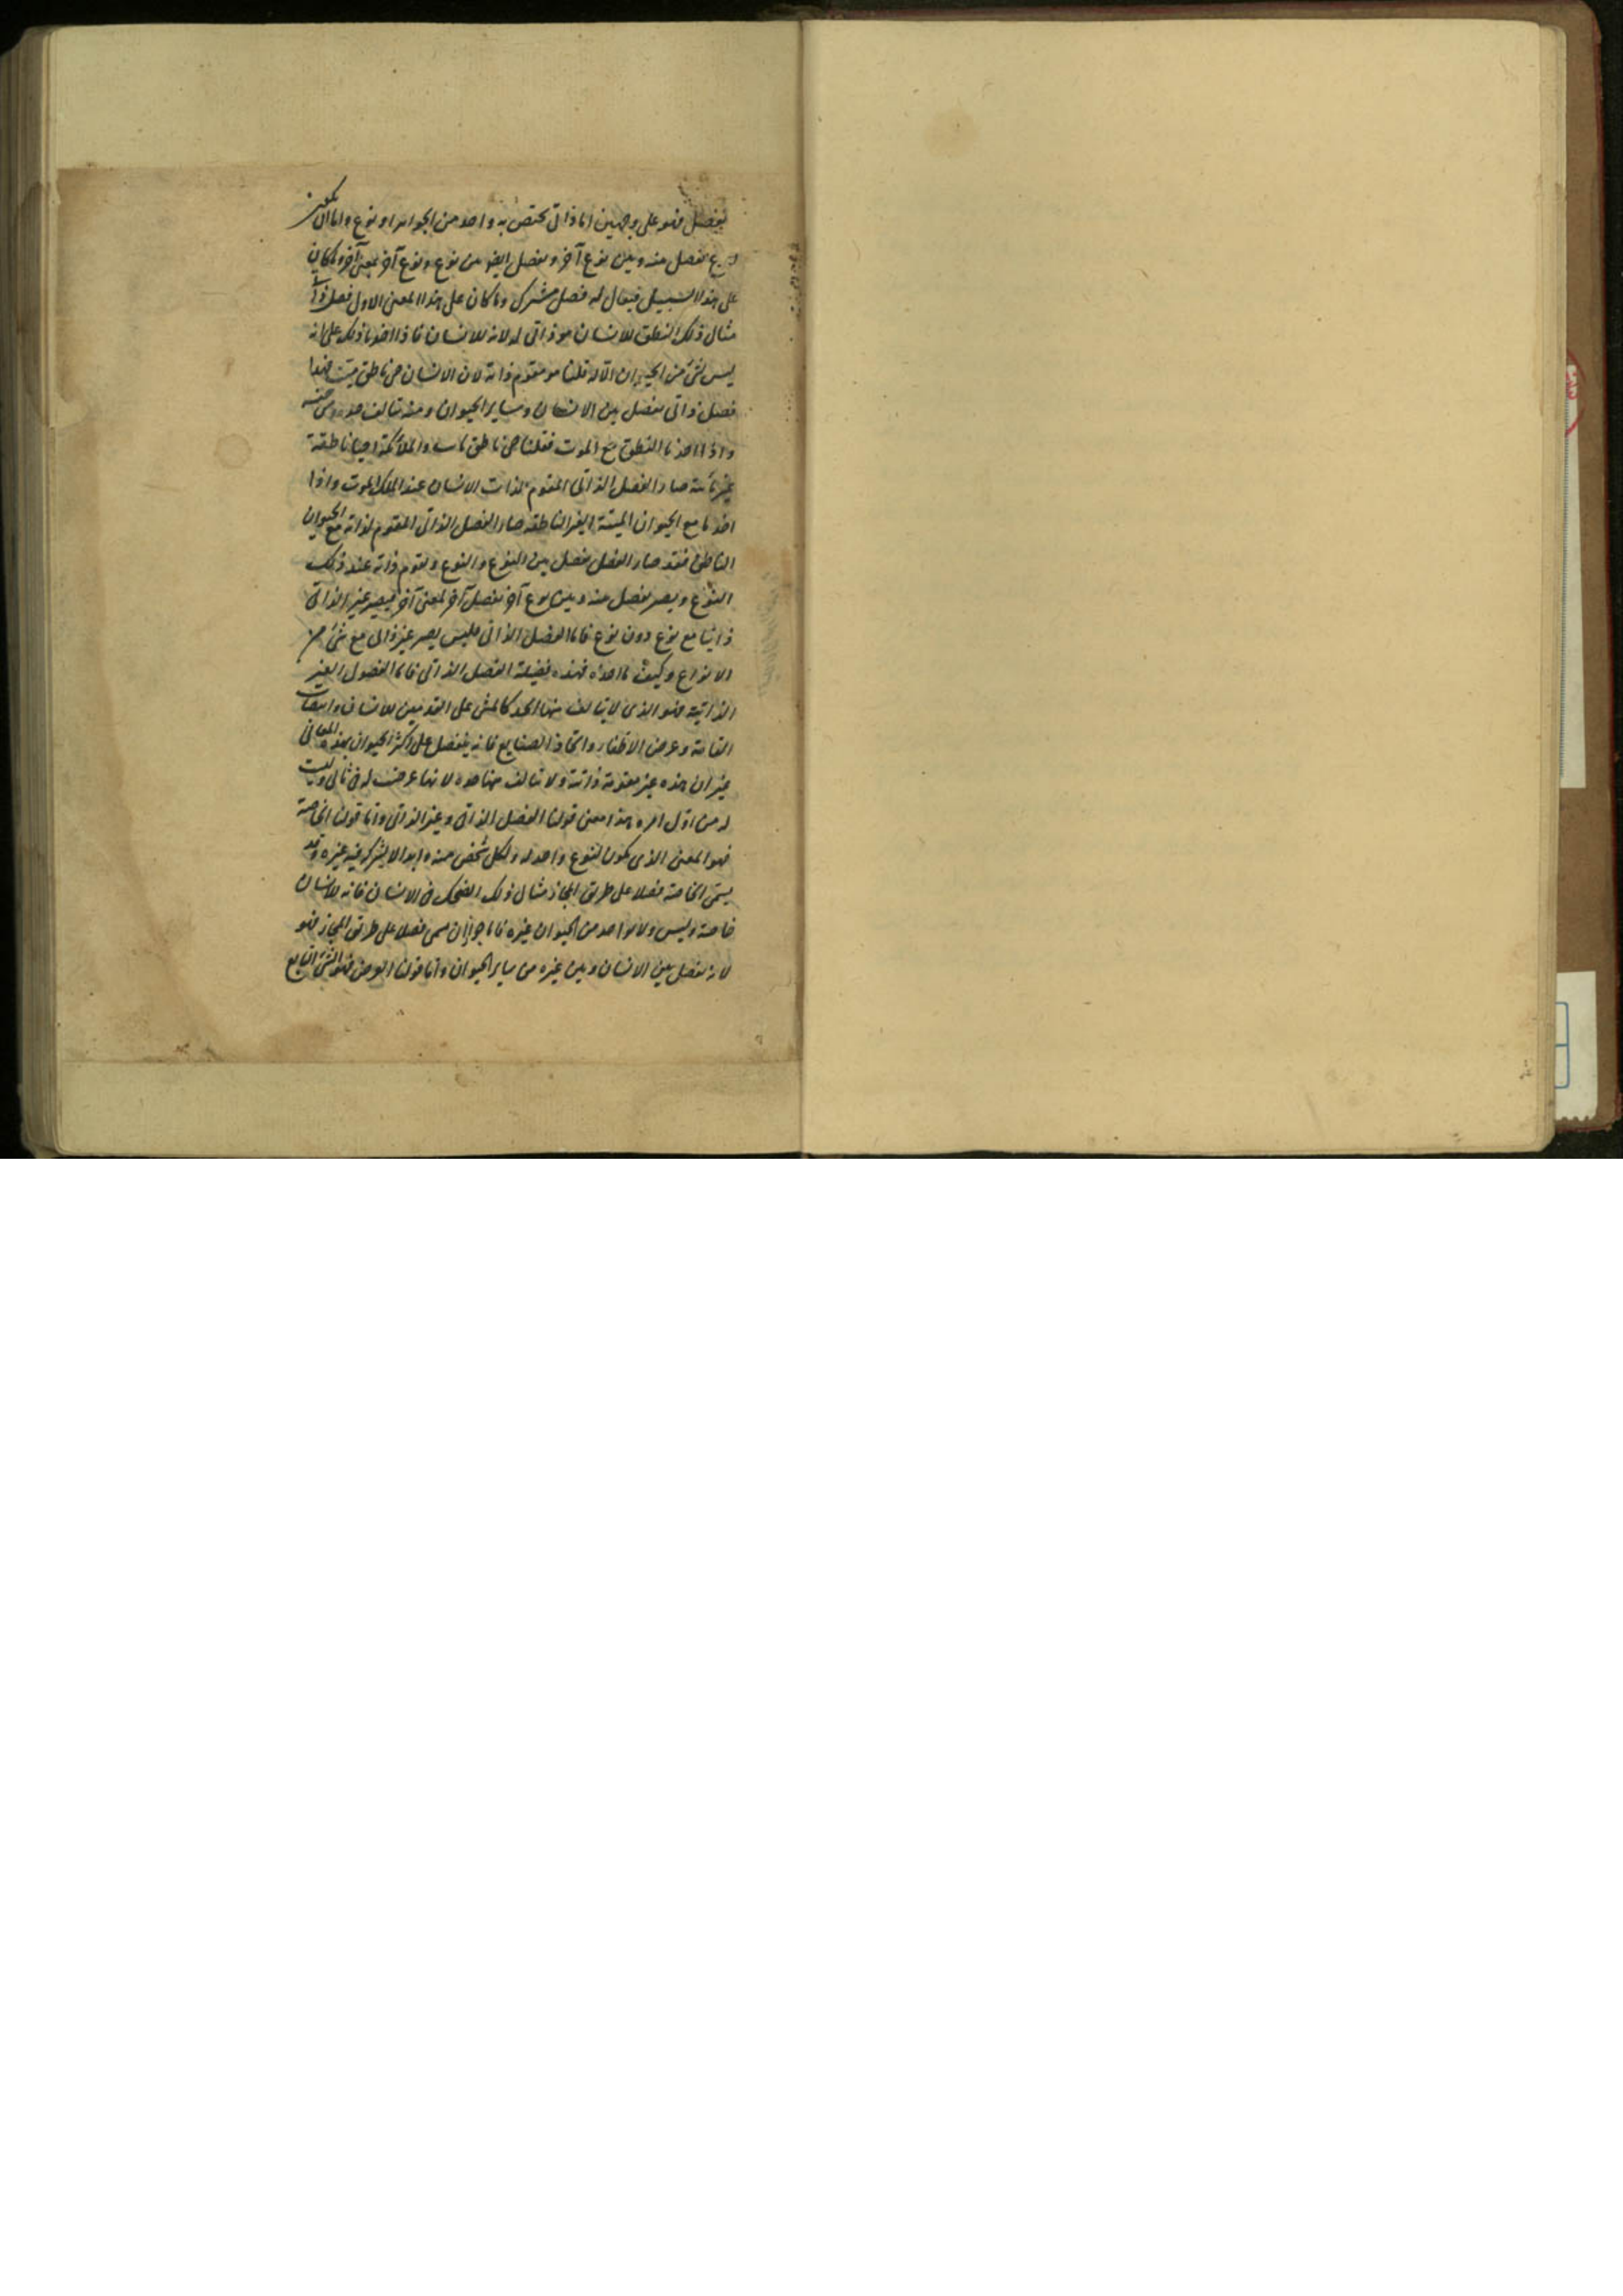 يفصل فهو على وجهين اما ذاتى يختص به واحد من الجواهر او نوع واما ان يكون
يفصل منه وبين نوع آخر ويفصل ايضا بين نوع ونوع آخر بمعنى آخر وما كان
على هذا السبيل فيقال له فصل مشترك وما كان على هذا المعنى الاول فصل ذاتى
مثال ذلك النطق للانسان هو ذاتى له لانه للانسان فاذا اخذنا ذلك على انه
ليس لشىء من الحيوان الا له قلنا هو مقوم ذاته لان الانسان حى ناطق ميت فهذا
فصل ذاتى يفصل بين الانسان وساير الحيوان ومنه تتالف حده ومن جنسه
واذا اخذنا النطق مع الموت فقلنا حى ناطق مايت والملائكة احيا ناطقة
غير مائتة صار الفصل الذاتى المقوم لذات الانسان عند الملك الموت واذا
اخذنا مع الحيوان الميتة الغير الناطقة صار الفصل الذاتى المقوم لذاته مع الحيوان
الناطق فقد صار الفصل يفصل بين النوع والنوع ويقوم ذاته عند ذلك
النوع ويصير يفصل منه وبين نوع آخر بفصل آخر لمعنى آخر فيصير غير الذاتى
ذاتيا مع نوع دون نوع فاما الفصل الذاتى فليس يصير غير ذاتى مع شىء من
الانواع وكيف ما اخذه فهذه فضيلة الفصل الذاتى فاما الفصول الغير
الذاتية فهو الذى لا يتالف منها الحد كالمشى على القدمين للانسان وانتصاب
القامة وعرض الاظفار واتخاذ الصنايع فانه ينفصل على اكثر الحيوان بهذه المعانى
غير ان هذه غير مقومة ذاته ولا تتالف منها حده لانها عرضت له فى ثانى وليست
له من اول امره هذا معنى قولنا الفصل الذاتى وغير الذاتى واما قولنا الخاصة
فهو المعنى الذى يكون لنوع واحد له ولكل شخص منه وابدا لا يشركه فيه غيره وقد
يسمى الخاصة فصلا على طريق المجاز مثال ذلك الضحك فى الانسان فانه للانسان
خاصة وليس ولا لواحد من الحيوان غيره فاما جواز ان يسمى فصلا على طريق المجاز فهو
لانه يفصل بين الانسان وبين غيره من ساير الحيوان واما قولنا العرض فهو الشىء التابع